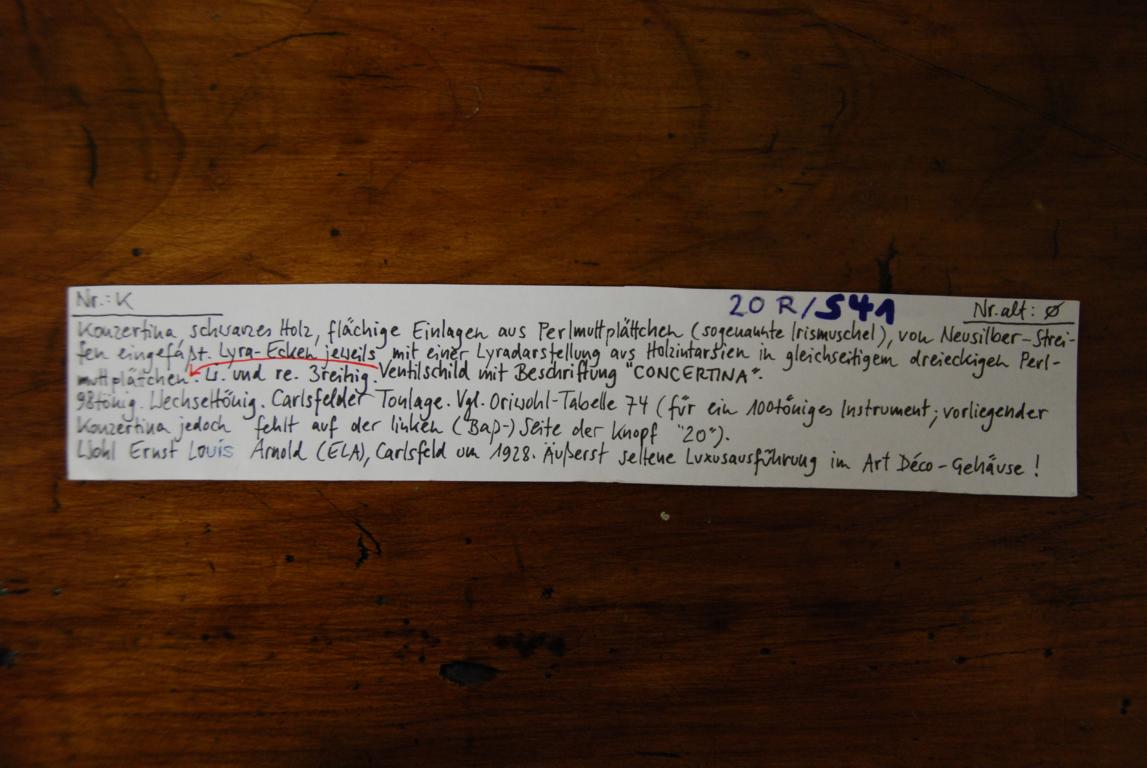 Nr.: K 20 R/S41 Nr. alt: ø
Konzertina, schwarzes Holz, flächige Einlagen aus Perlmuttplättchen (sogenannte Irismuschel), von Neusilber-Strei-
fen eingefaßt. Lyra-Ecken jeweils mit einer Lyradarstellung aus Holzintarsien in gleichseitigem dreieckigen Perl-
muttplättchen. Li. und re. 3reihig. Ventilschild mit Beschriftung "CONCERTINA".
98tönig. Wechseltönig. Carlsfelder Tonlage. Vgl. Oriwohl-Tabelle 74 (für ein 100töniges Instrument; vorliegender
Konzertina jedoch fehlt auf der linken (Baß-) Seite der Knopf "20").
Wohl Ernst Louis Arnold (ELA), Carlsfeld um 1928. Äußerst seltene Luxusausführung im Art Déco-Gehäuse!